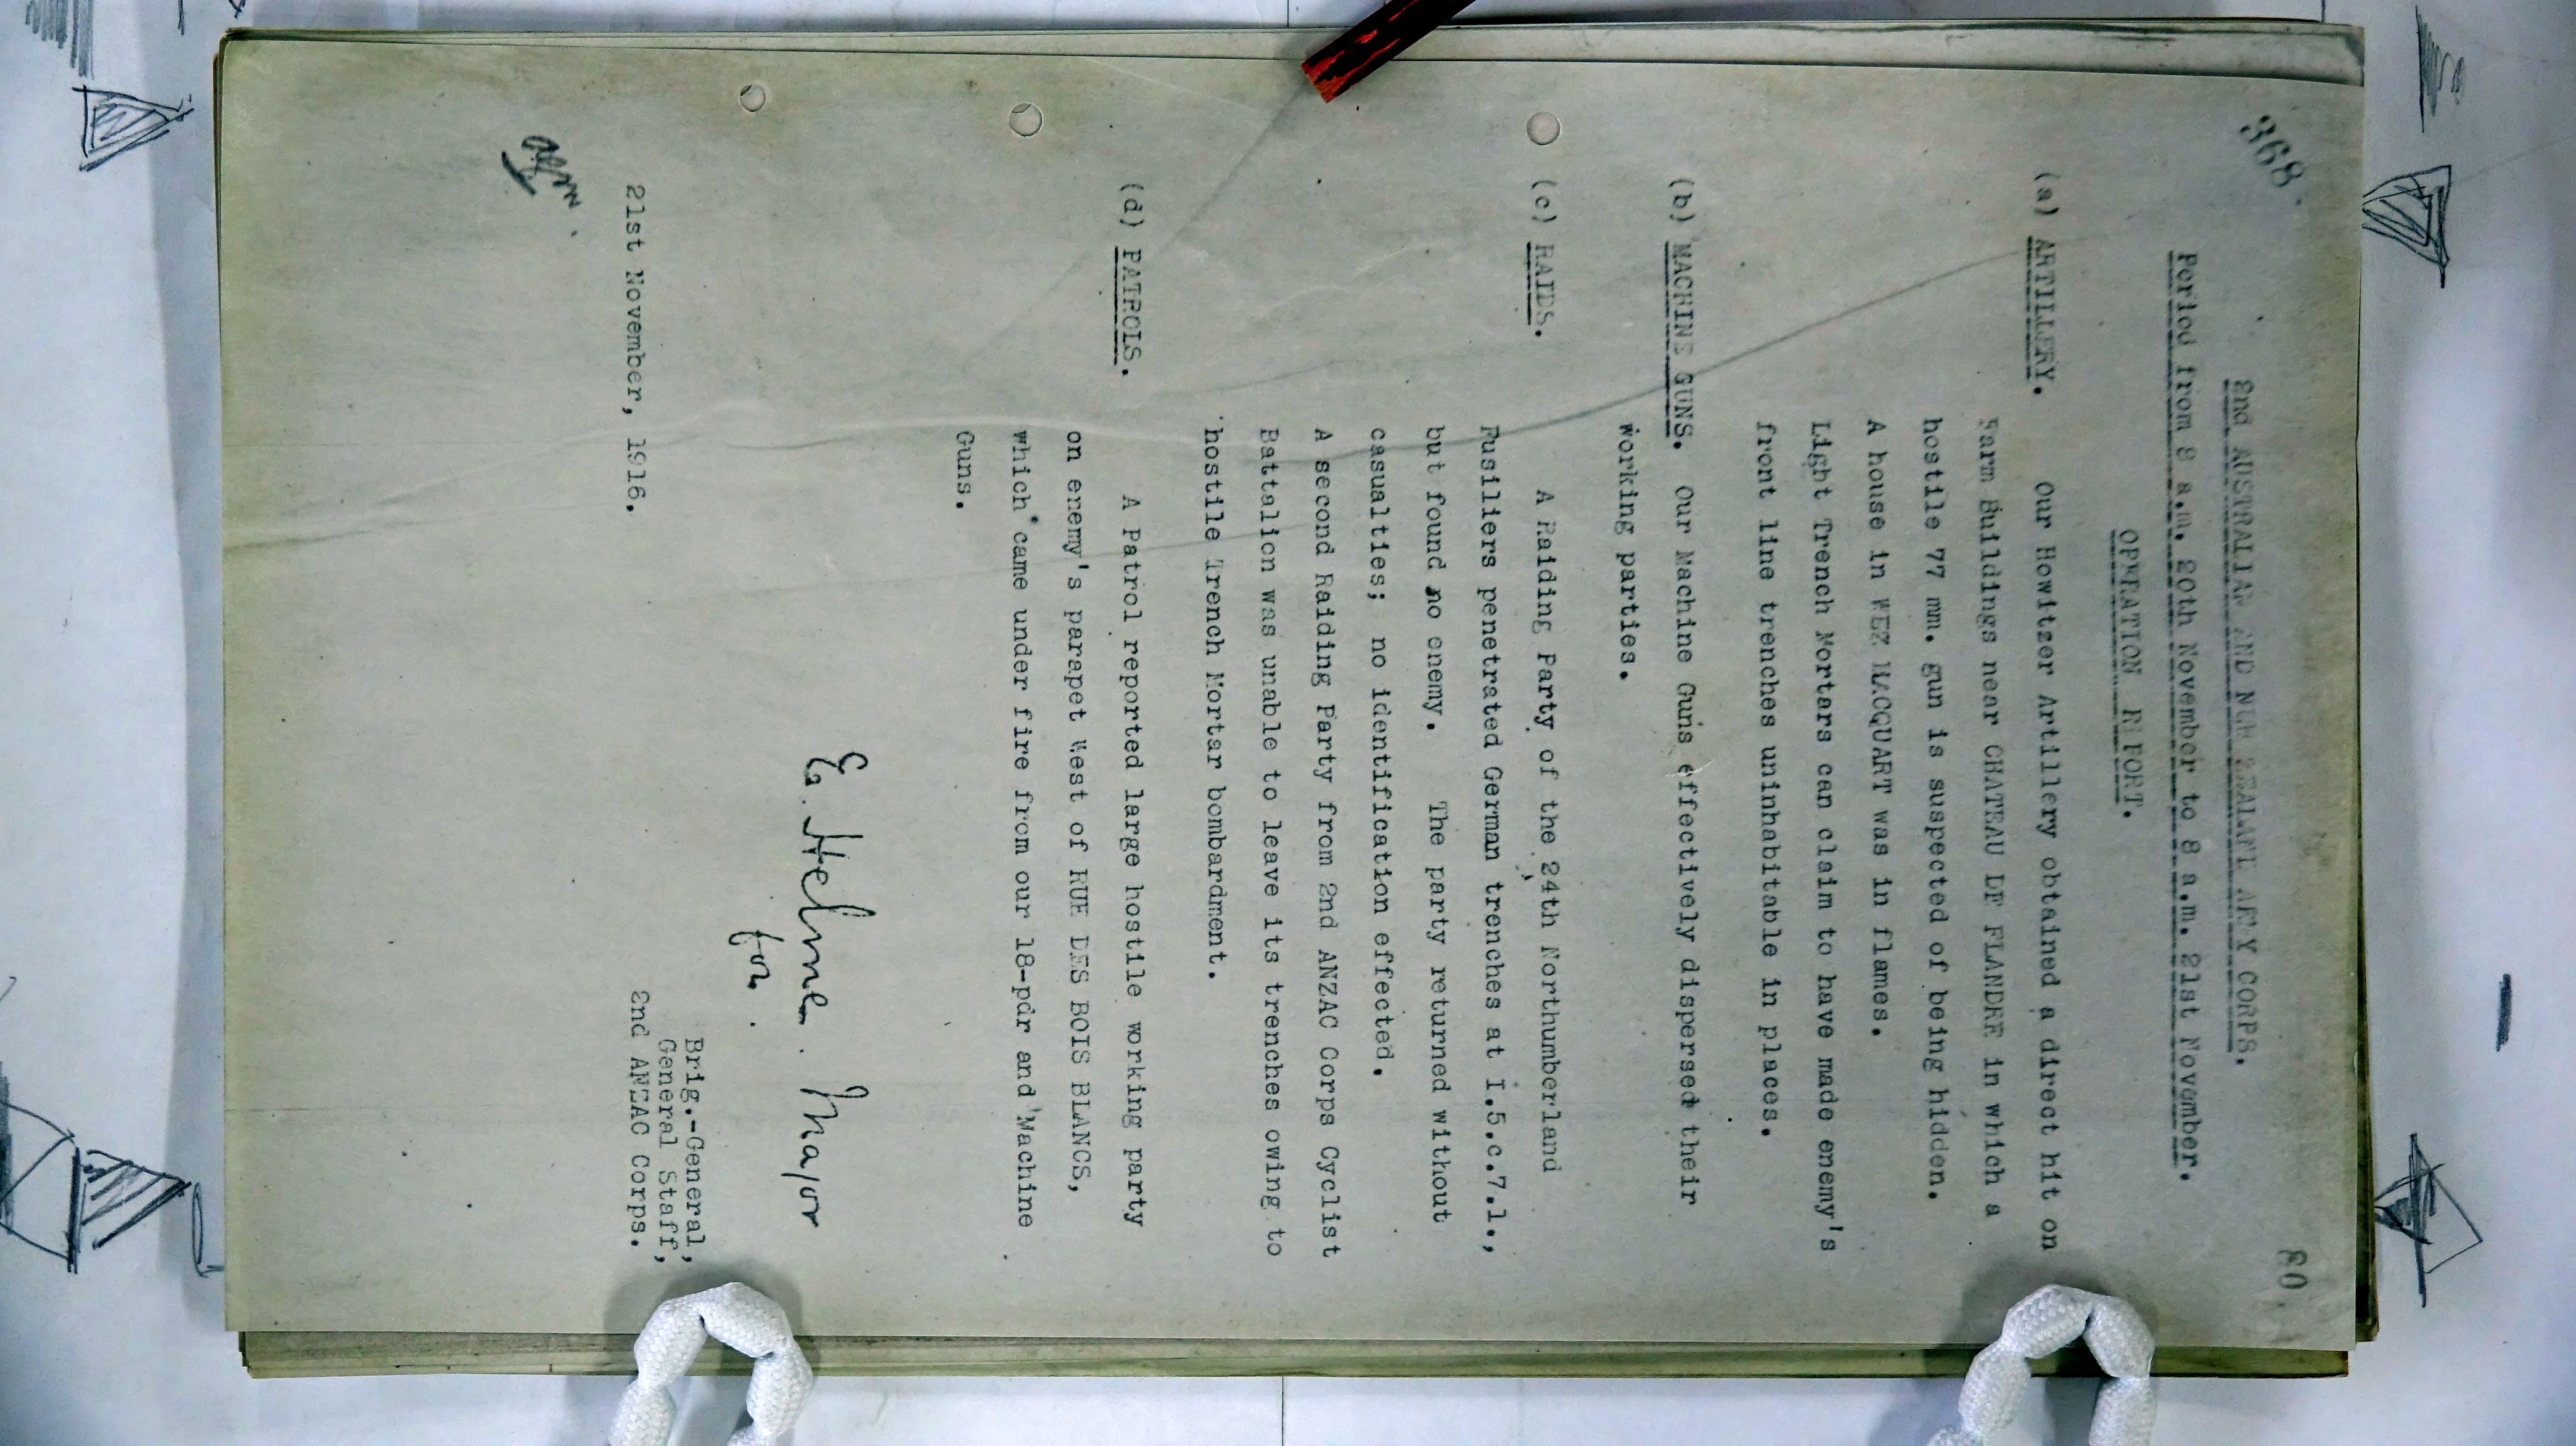 368.
80.
2nd AUSTRALIAN AND NEW ZEALAND ARMY CORPS.
Period from 8 a.m. 20th November to 8 a.m. 21st November.
OPERATION REPORT.
(a) ARTILLERY. Our Howitzer Artillery obtained a direct hit on
Farm Buildings near CHATEAU DE FLANDRE in which a
hostile 77 mm. gun is suspected of being hidden.
A house in WEZ MACQUART was in flames.
Light Trench Mortars can claim to have made enemy's
front line trenches uninhabitable in places.
(b) MACHINE GUNS. Our Machine Guns effectively dispersed their
working parties.
(c) RAIDS. A Raiding Party of the 24th Northumberland
Fusiliers penetrated German trenches at I.5.c.7.1.,
but found no enemy. The party returned without
casualties; no identification effected.
A second Raiding Party from 2nd ANZAC Corps Cyclist
Battalion was unable to leave its trenches owing to
hostile Trench Mortar bombardment.
(d) PATROLS. A Patrol reported large hostile working party
on enemy's parapet West of RUE DES BOIS BLANCS,
which came under fire from our 18-pdr and Machine
Guns.
Major
for.
Brig.-General,
General Staff,
21st November, 1916. 2nd ANZAC Corps.